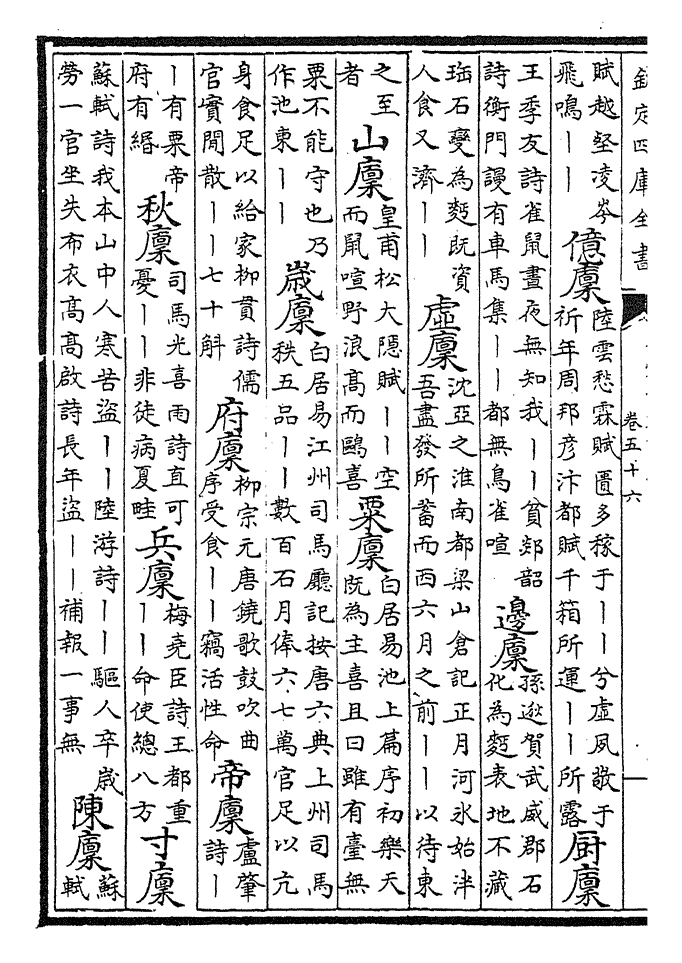 欽定四庫全書
卷五十六
賦越壑凌岑飛鳴丨丨 億廩 陸雲愁霖賦匱多稼于丨丨兮虛夙敬于祈年周邦彥汴都賦千箱所運丨丨所露 厨廩
王季友詩雀鼠晝夜無知我丨丨貧郯韶詩衡門謾有車馬集丨丨都無鳥雀喧 邊廩 孫逖賀武威郡石化為麪表地不藏
珤石變為麪既資人食又濟丨丨 虛廩 沈亞之淮南都梁山倉記正月河氷始泮吾盡發所蓄而西六月之前丨丨以待東
之至者 山廩 皇甫松大隱賦丨丨空而鼠喧野浪高而鷗喜 粟廩 白居易池上篇序初樂天既為主喜且曰雖有臺無
粟不能守也乃作池東丨丨 歲廩 白居易江州司馬廳記按唐六典上州司馬秩五品丨丨數百石月俸六七萬官足以亢
身食足以給家柳貫詩儒官實閒散丨丨七十斛 府廩 柳宗元唐鐃歌鼓吹曲序受食丨丨竊活性命 帝廩 盧肇詩丨
丨有粟帝府有緡 秋廩 司馬光喜雨詩直可憂丨丨非徒病夏畦 兵廩 梅堯臣詩王都重丨丨命使總八方 寸廩
蘇軾詩我本山中人寒苦盜丨丨陸游詩丨丨驅人卒歲勞一官坐失布衣高高啟詩長年盜丨丨補報一事無 陳廩 蘇軾